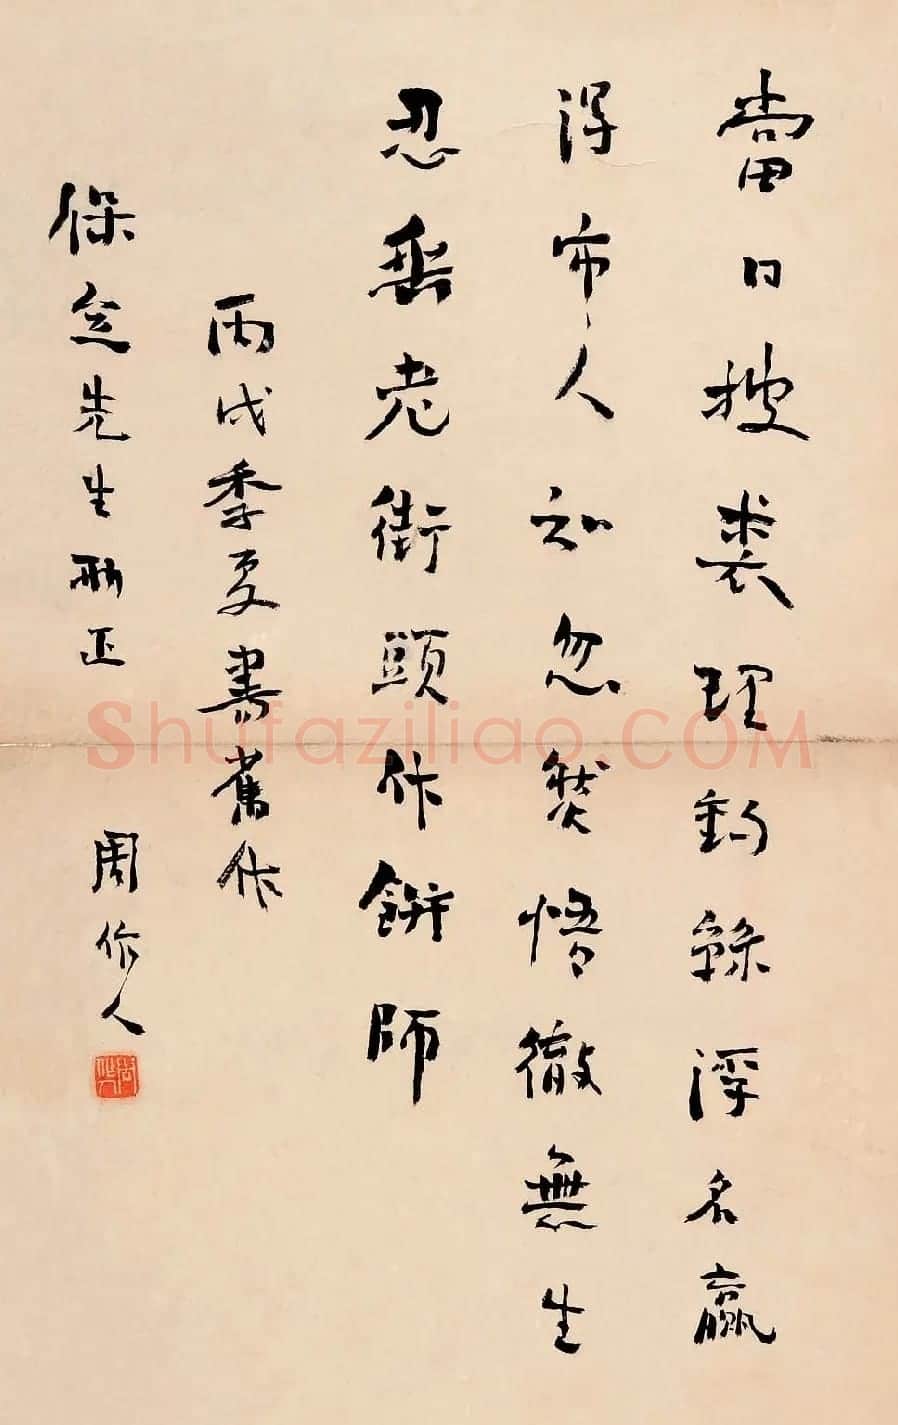 當日披裘理釣絲浮名贏
得市人知忽然悟徹無生
忍垂老街頭作餅師
丙戌季夏書舊作
保先生正
周作人
Shufaziliao.COM